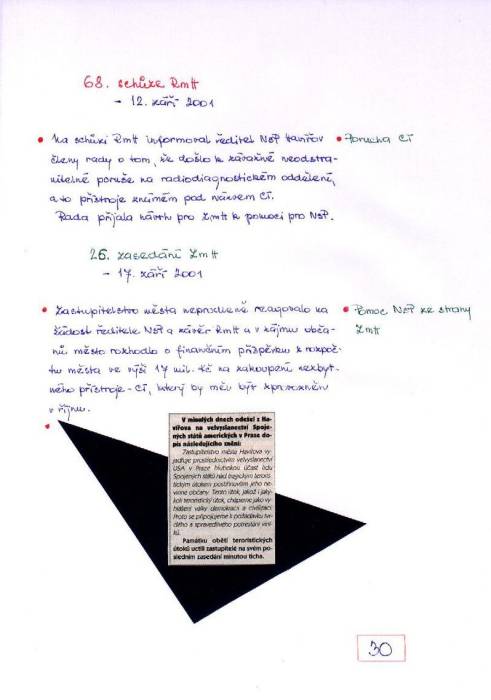 68. schůze RmH
- 12. září 2001
• Na schůzi RmH informoval ředitel NsP Havířov
členy rady o tom, že došlo k závažné neodstra-
nitelné poruše na radiodiagnostickém oddělení,
a to přístroje známém pod názvem CT.
Rada přijala návrh pro ZmH k pomoci pro NsP.
• Porucha CT
26. zasedání ZmH
- 17. září 2001
• Zastupitelstvo města neprodleně reagovalo na
žádost ředitele NsP a závěr RmH a v zájmu obča-
nů město rozhodlo o finančním příspěvku z rozpoč-
tu města ve výši 17 mil. Kč na zakoupení nezbyt-
ného přístroje - CT, který by měl být zprovozněn
v říjnu.
• Pomoc NsP ze strany
ZmH
V minulých dnech odešel z Ha-
vířova na velvyslanectví Spoje-
ných států amerických v Praze do-
pis následujícího znění:
Zastupitelstvo města Havířova vy-
jadřuje prostřednictvím velvyslanectví
USA v Praze hlubokou účast lidu
Spojených států nad trojským teroris-
tickým útokem postihnuvším jeho ne-
vinné občany. Tento útok, jakož i jaký-
koli teroristický útok, chápeme jako vy-
hlášení války demokracii a civilizaci.
Proto se připojujeme k požadavku tvr-
dého a spravedlivého potrestání vini-
ků.
Památku obětí teroristických
útoků uctili zastupitelé na svém po-
sledním zasedání minutou ticha.
30